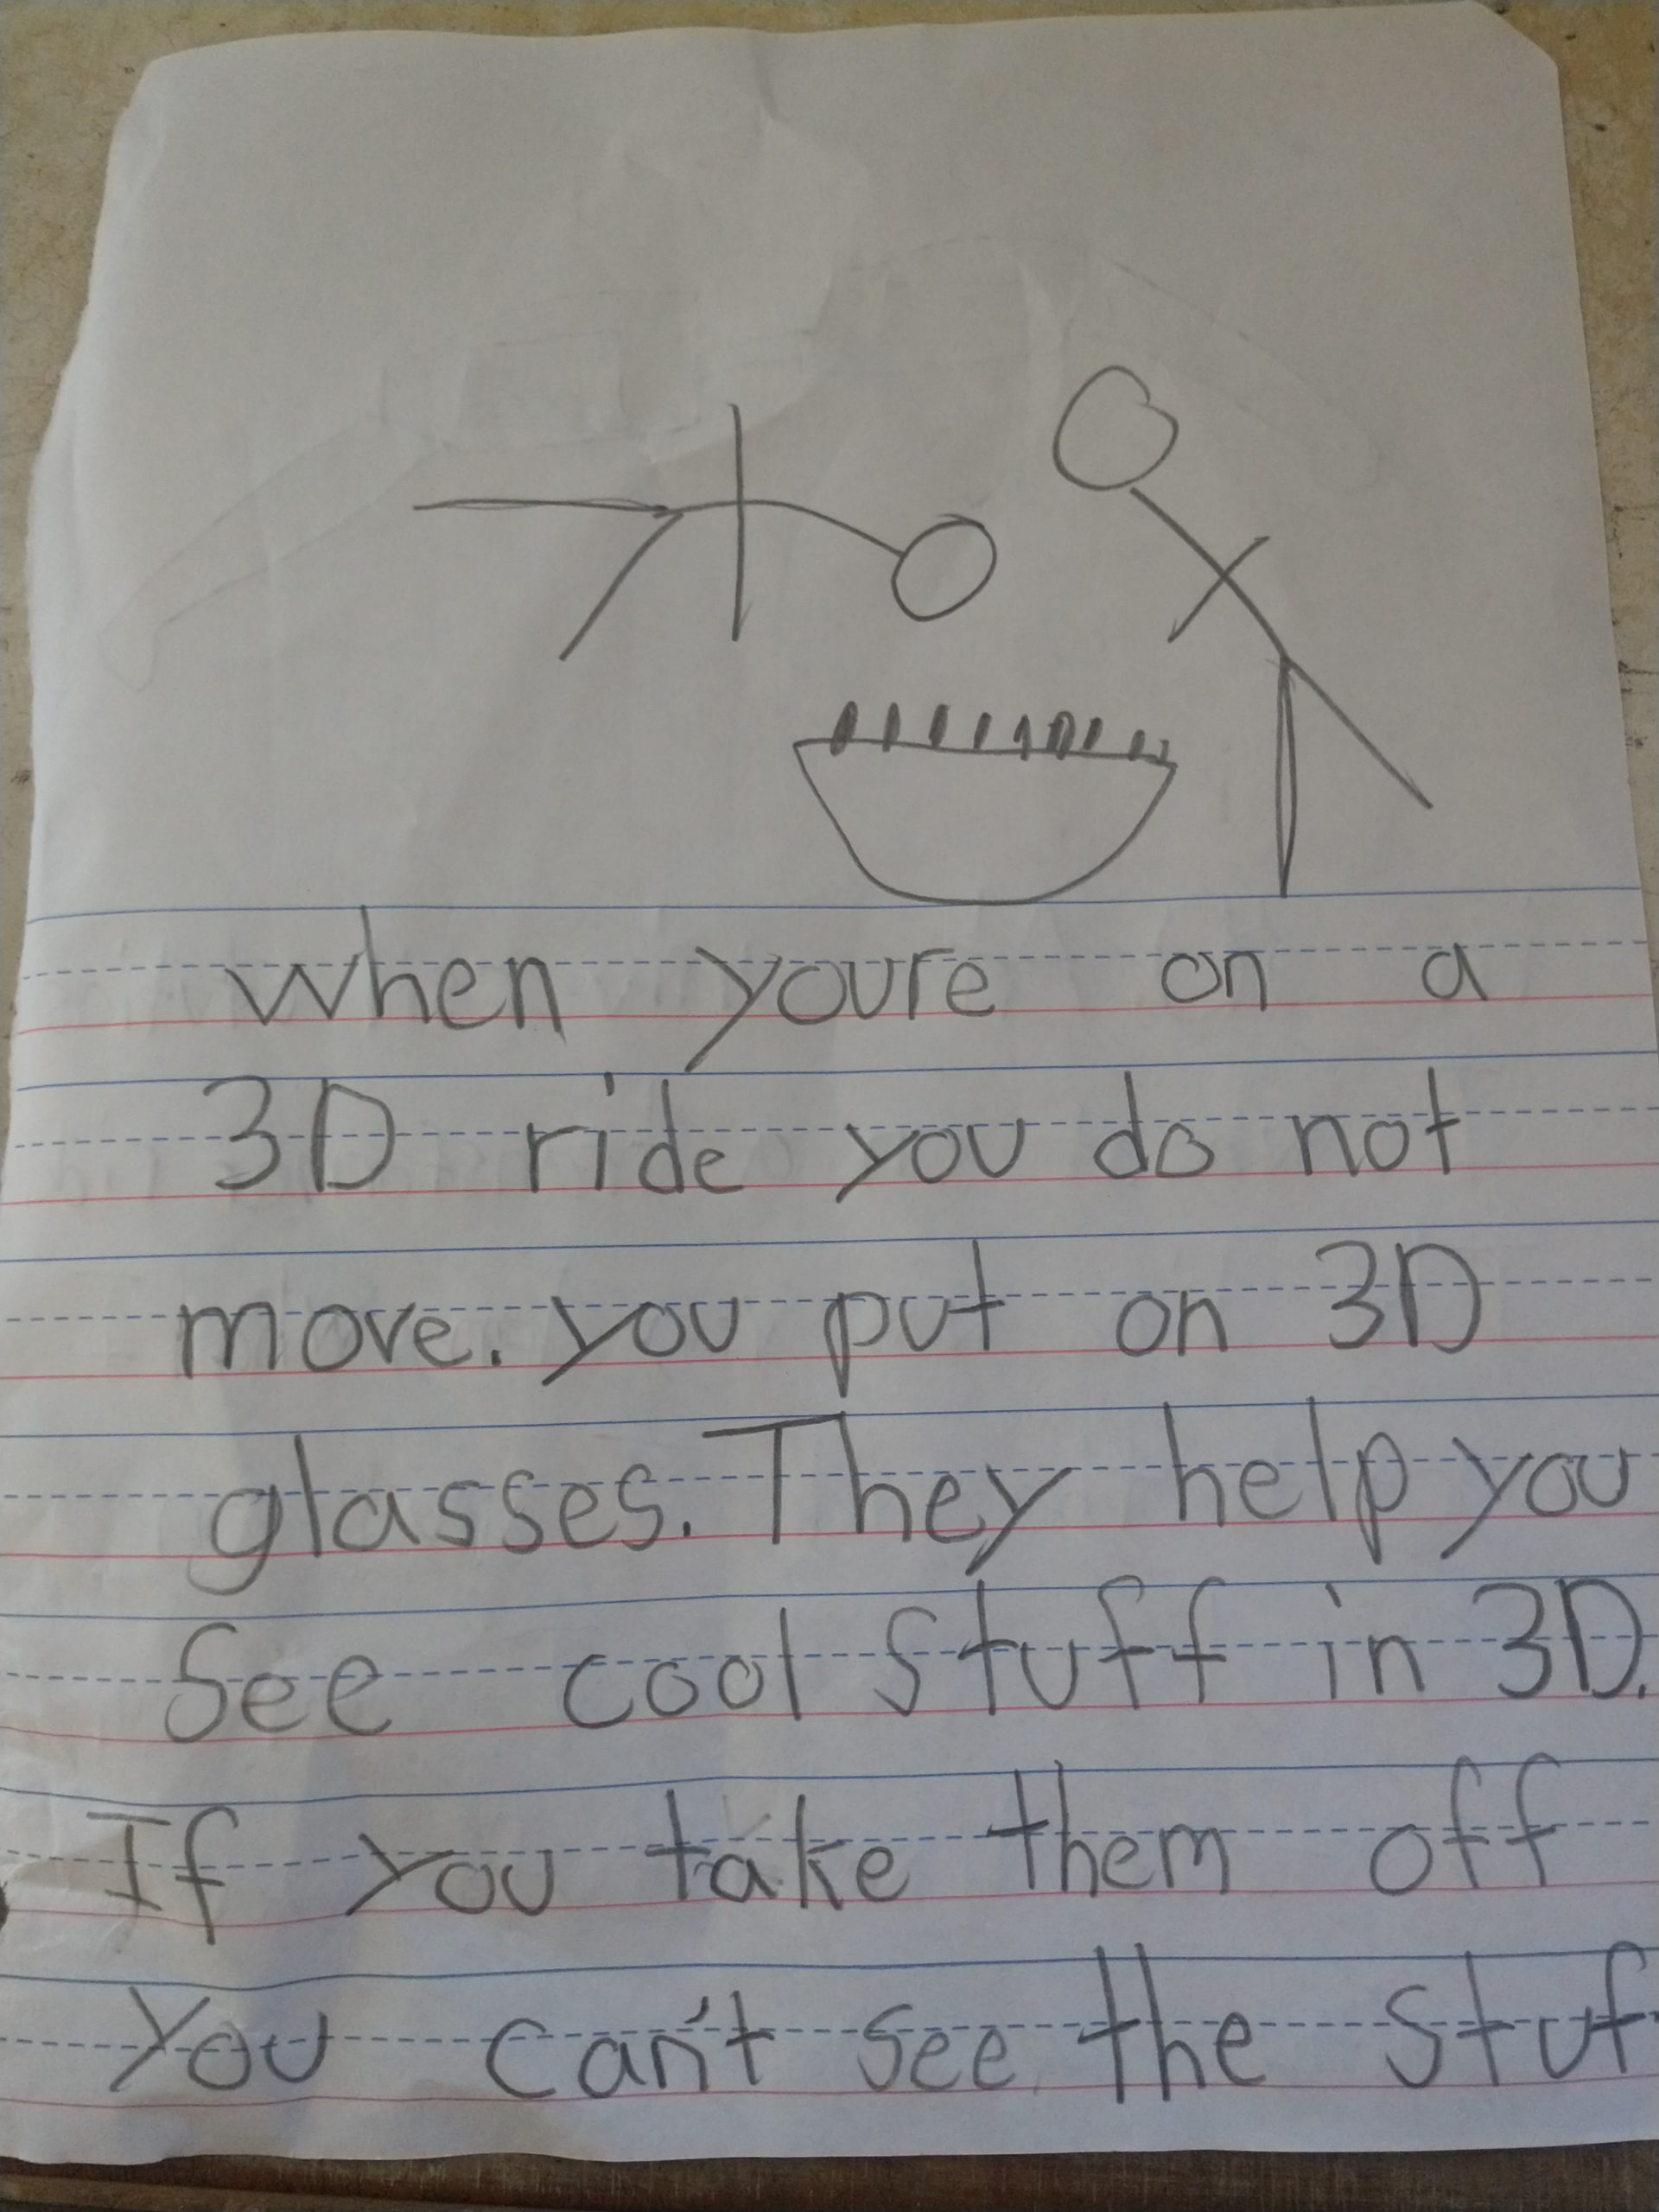 when youre on a
3D ride you do not
move. you put on 3D
glasses. They help you
See cool stuff in 3D.
If you take them off
You can't see the stuf